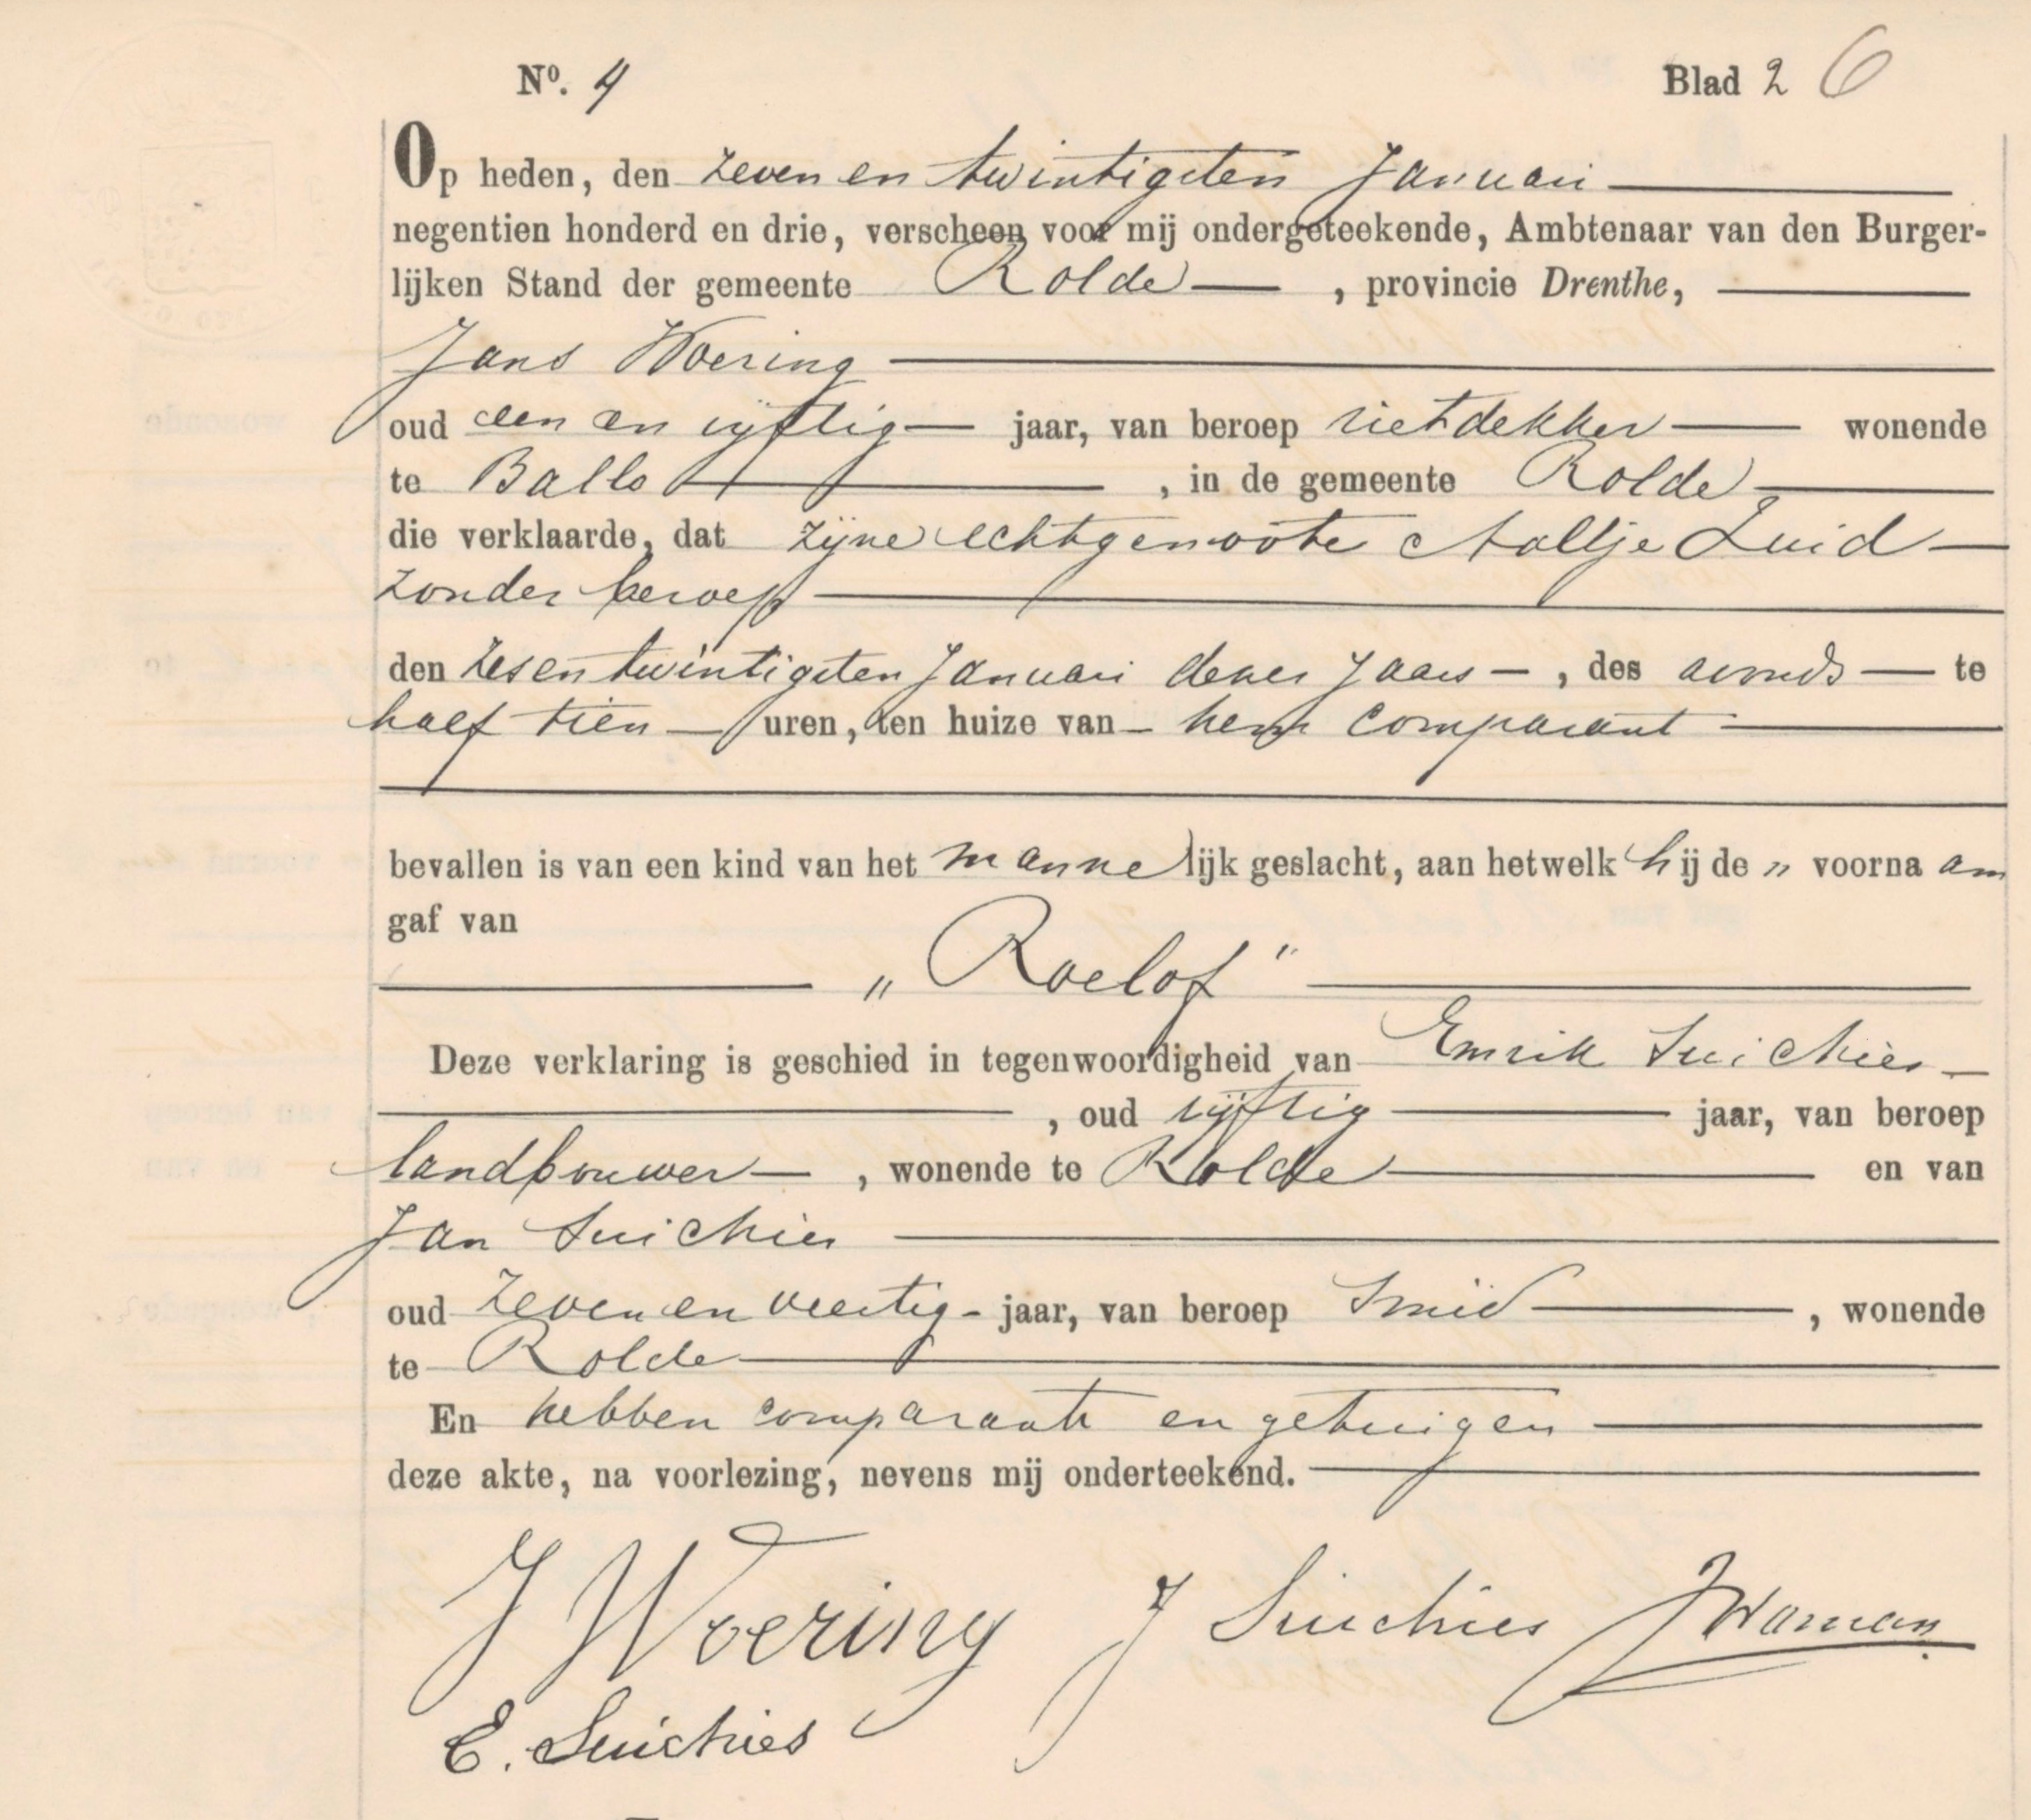 Nº. 4 Blad 2 6
Op heden, den zeven en twintigsten Januari
negentien honderd en drie, verscheen voor mij ondergeteekende, Ambtenaar van den Burger-
lijken Stand der gemeente Rolde, provincie Drenthe,
Jans Woering
oud een en vijftig jaar, van beroep rietdekker wonende
te Ballo, in de gemeente Rolde
die verklaarde, dat zijne echtgenoote Aaltje Zuid
zonder beroep
den zesentwintigsten Januari dezes jaars, des avonds te
half tien uren, ten huize van hem comparant
bevallen is van een kind van het mannelijk geslacht, aan hetwelk hij de " voornaam
gaf van
„Roelof"
Deze verklaring is geschied in tegenwoordigheid van Emrik Suichies
, oud vijftig jaar, van beroep
landbouwer, wonende te Rolde en van
Jan Suichies
oud zeven en veertig jaar, van beroep Smid, wonende
te Rolde
En hebben comparante en getuigen
deze akte, na voorlezing, nevens mij onderteekend.
J Woering J Suichies
E. Suichies